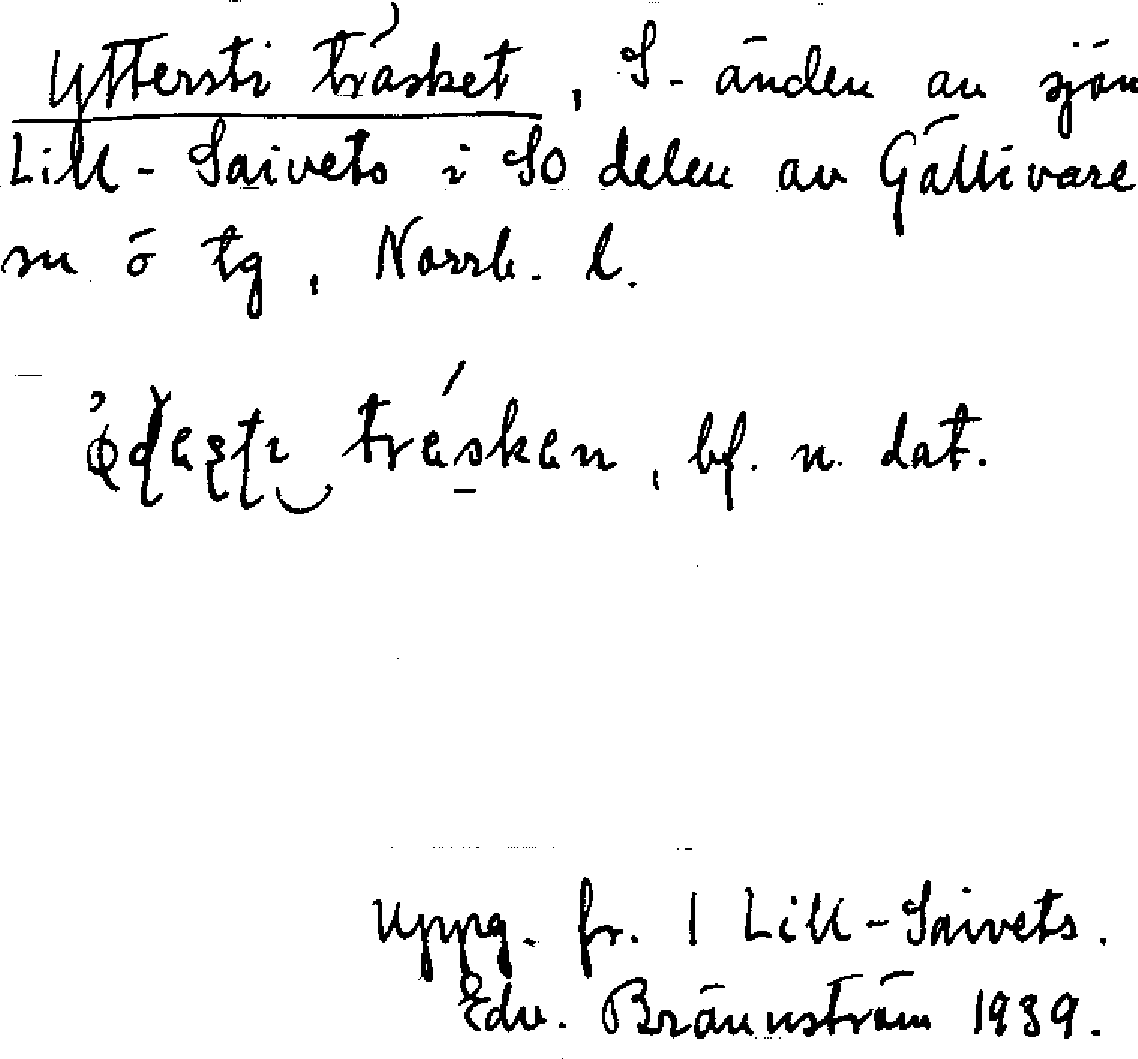 Yttersti träsket, S-änden av sjön
Lill-Saivets i SO delen av Gällivare
sn o tg, Norrb. l.
träskän, bf. n. dat.
Uppg. fr. 1 Lill-Saivets.
Edv. Brännström 1939.